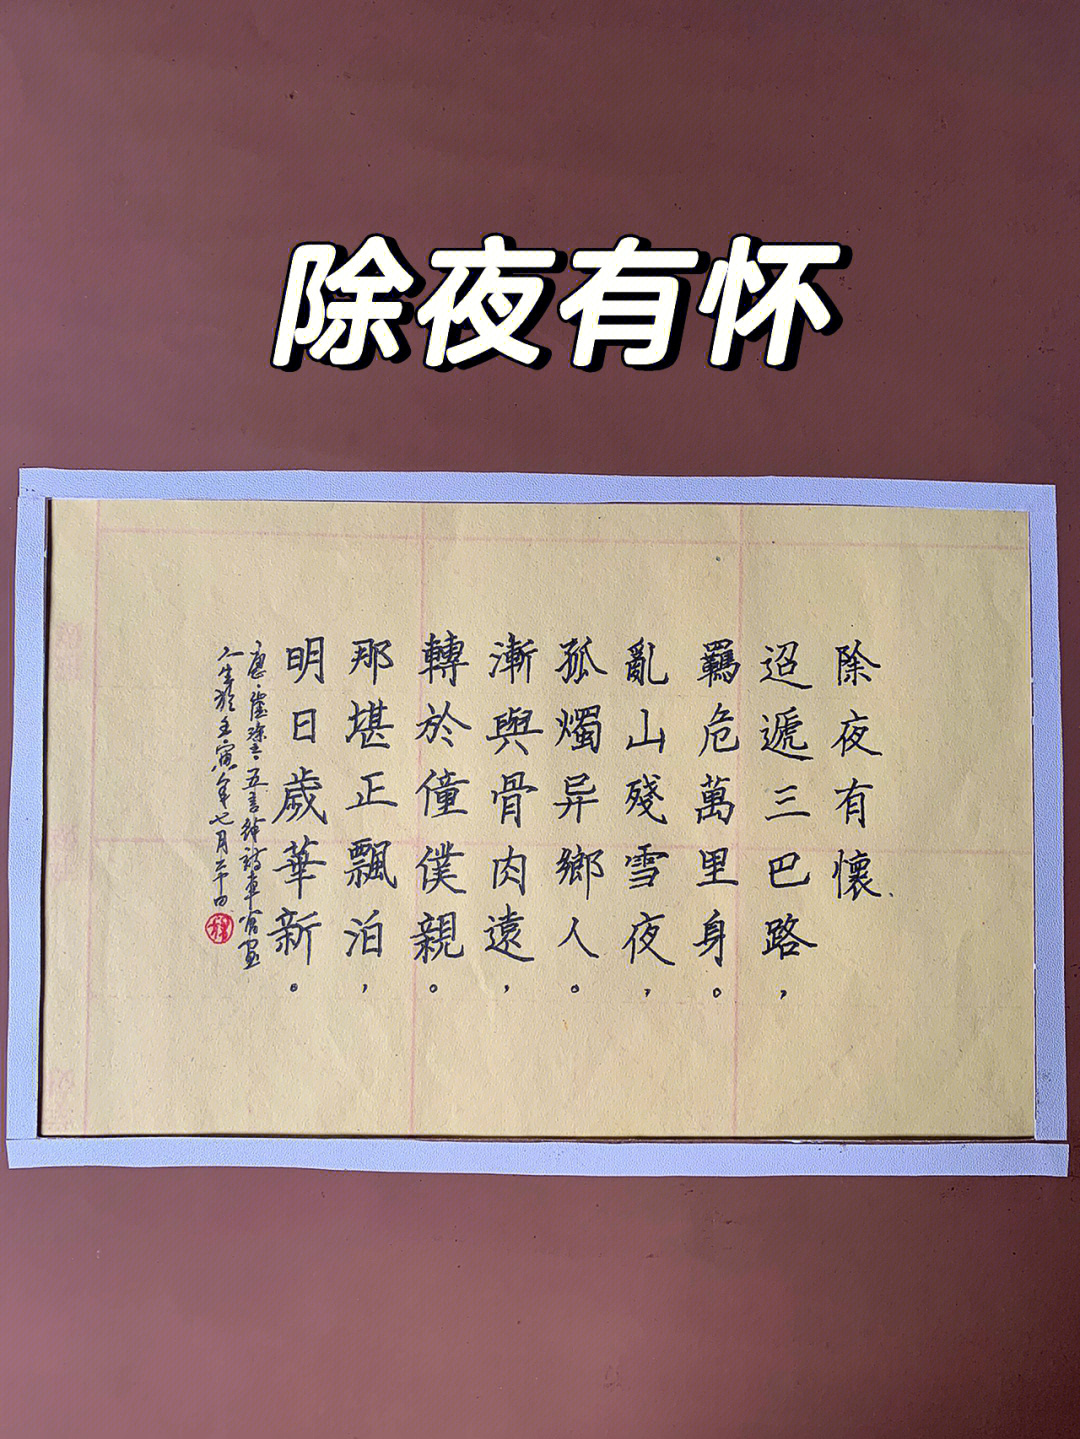 除夜有怀
除夜有懷
迢遞三巴路，
羈危萬里身。
亂山殘雪夜，
孤燭异鄉人。
漸與骨肉遠，
轉於僮僕親。
那堪正飄泊，
明日歲華新。
五言律詩
人生於壬寅年七月二十四